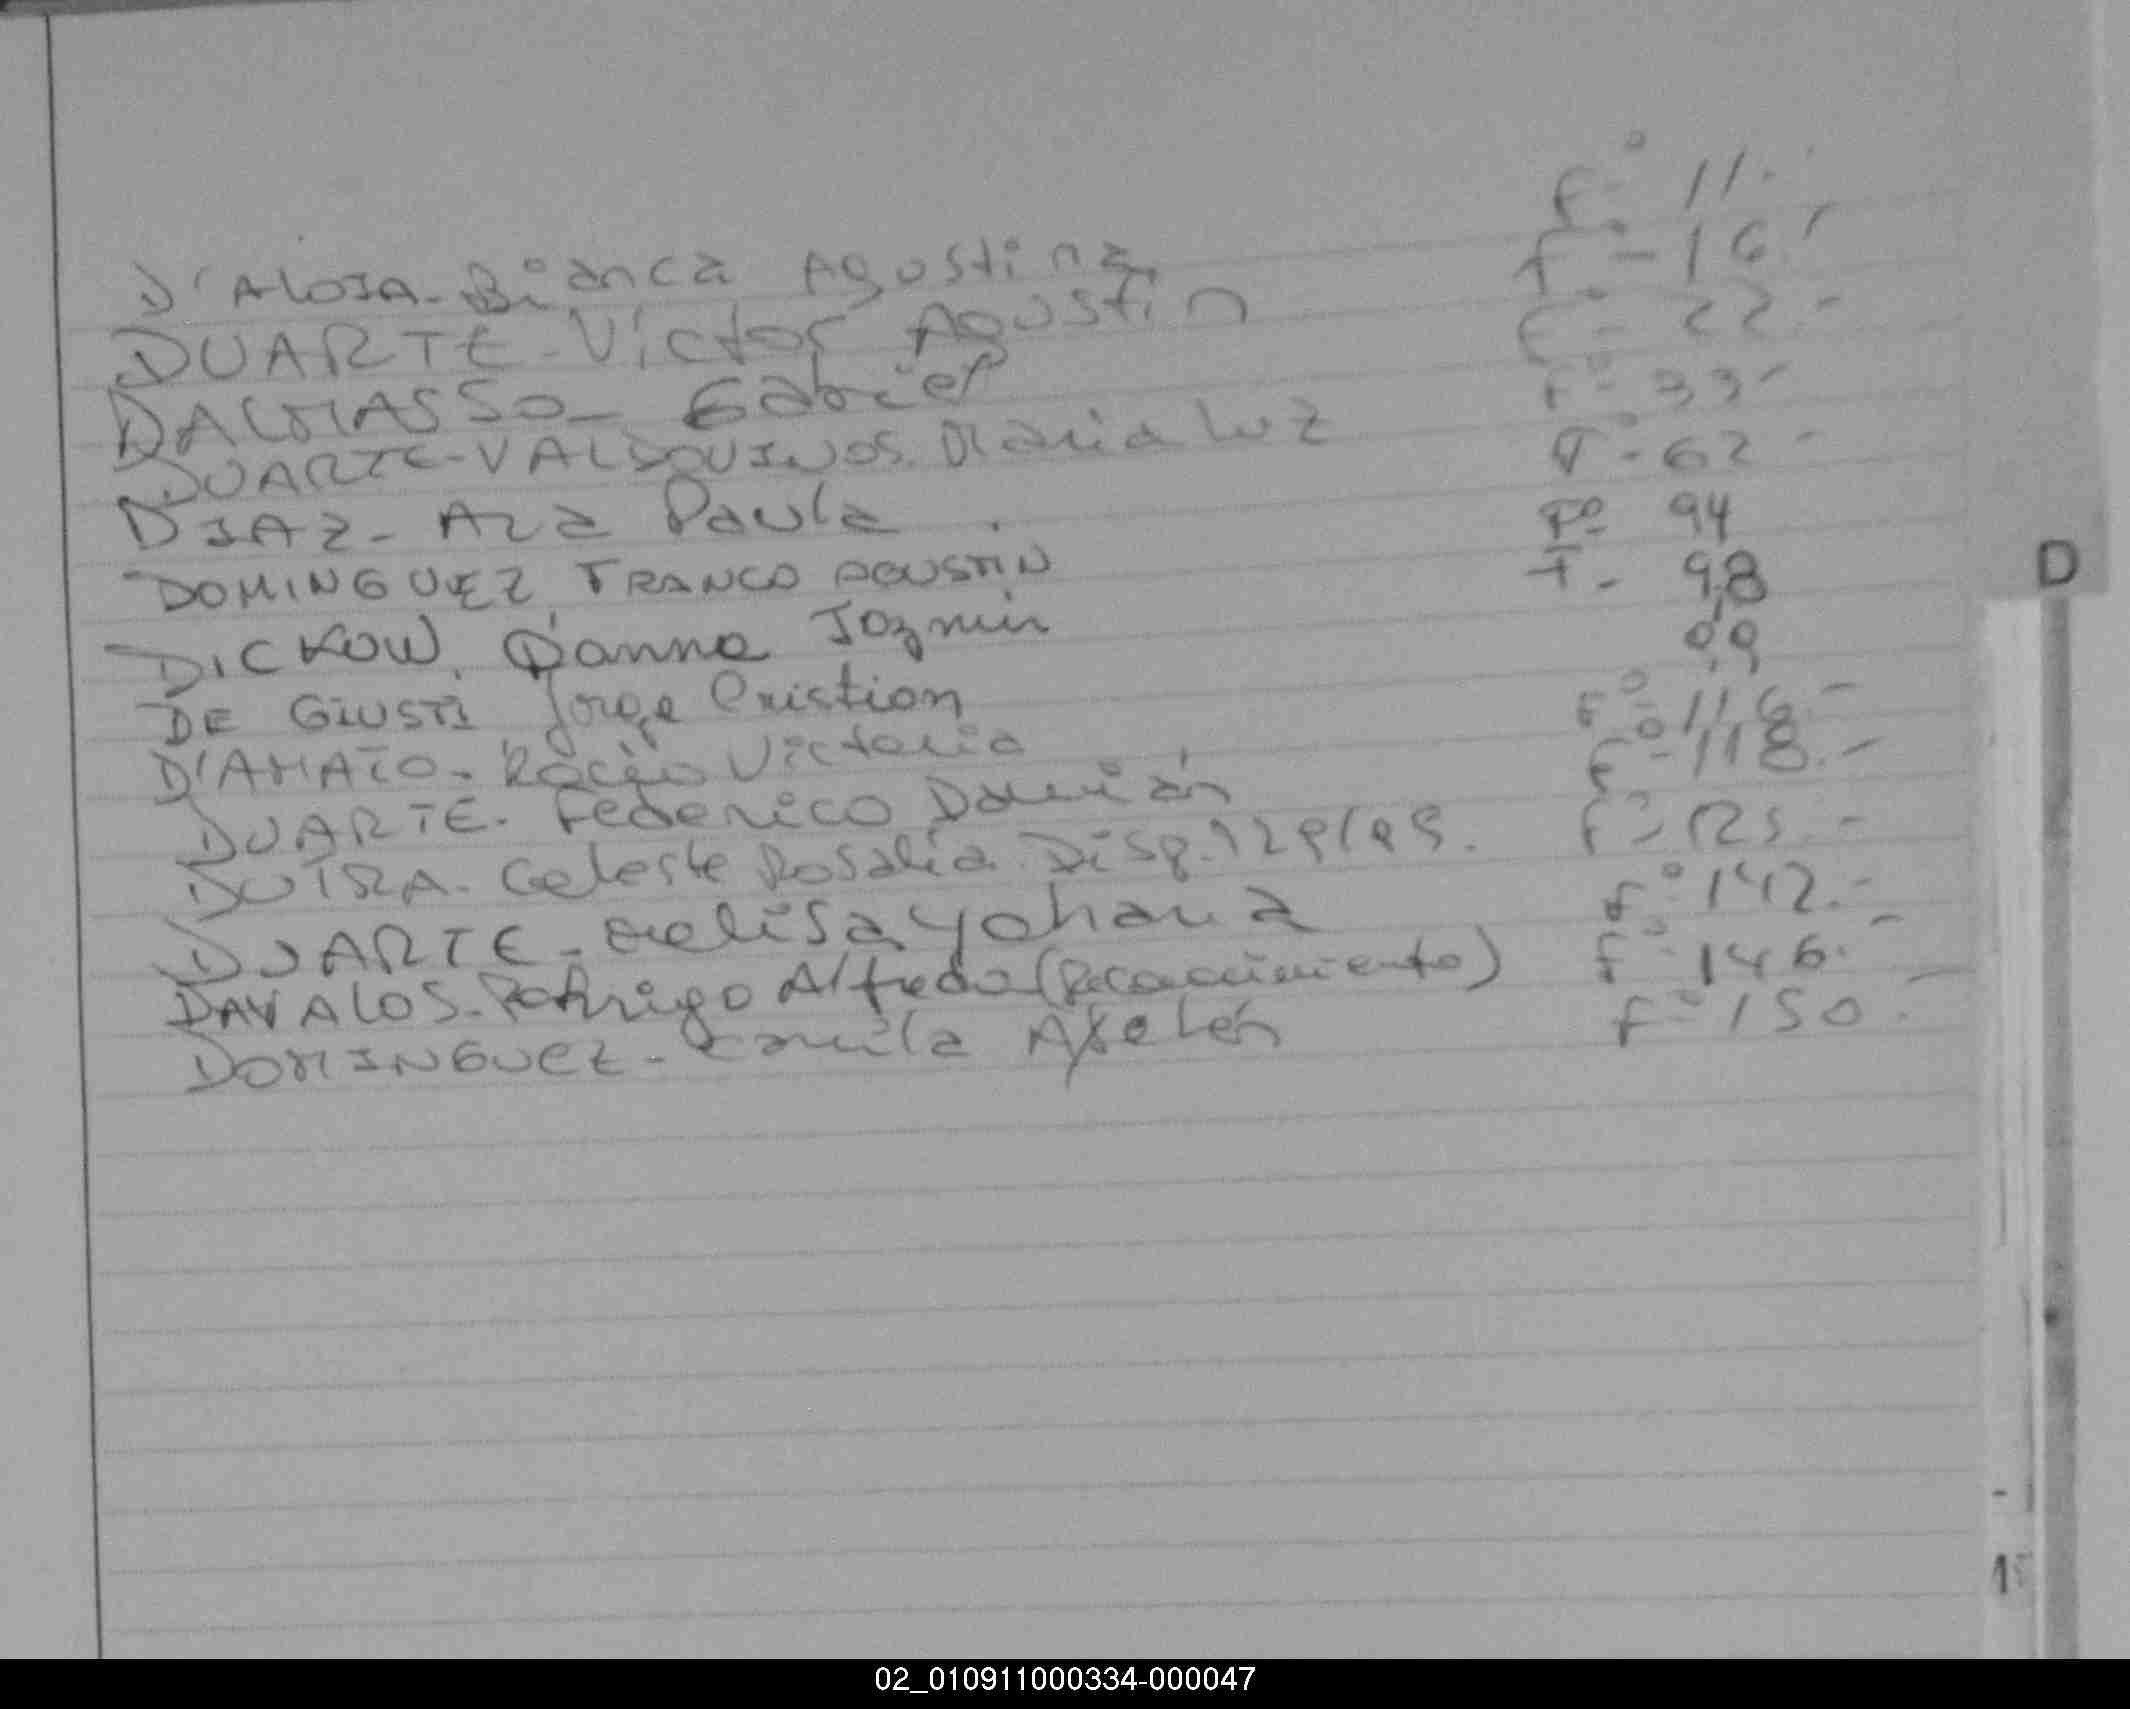 D'ALOIA - Bianca Agustina f° 11.
DUARTE - Victor Agustin f° - 16
DALMASSO - Gabriel f° - 22.-
DUARTE - VALDOVINOS. Maria Luz f° - 33 -
DIAZ - Ana Paula. F° - 62 -
DOMINGUEZ, FRANCO AGUSTIN F° 94
DICKOW, Dianna Jazmin F - 98
DE GIUSTI Jorge Cristian 99
D'AMATO - Rocio Victoria f° 116 -
DUARTE - Federico Damián f° - 118.-
DUTRA - Celeste Rosalia. Disp. f° - 125.-
DUARTE - Melisa Yohana f° 142.-
DAVALOS - Rodrigo Alfredo (Reconocimiento) f° 146.-
DOMINGUEZ - Camila Ayelén f° - 150.-
D
02_010911000334-000047